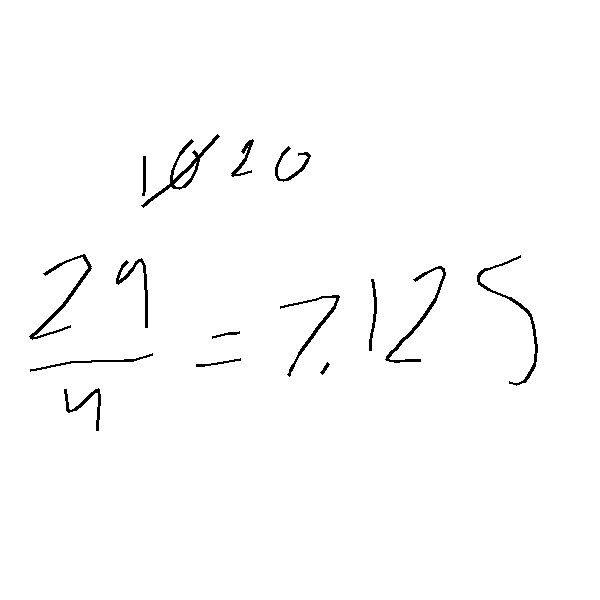 10 20
29
4
= 7.125